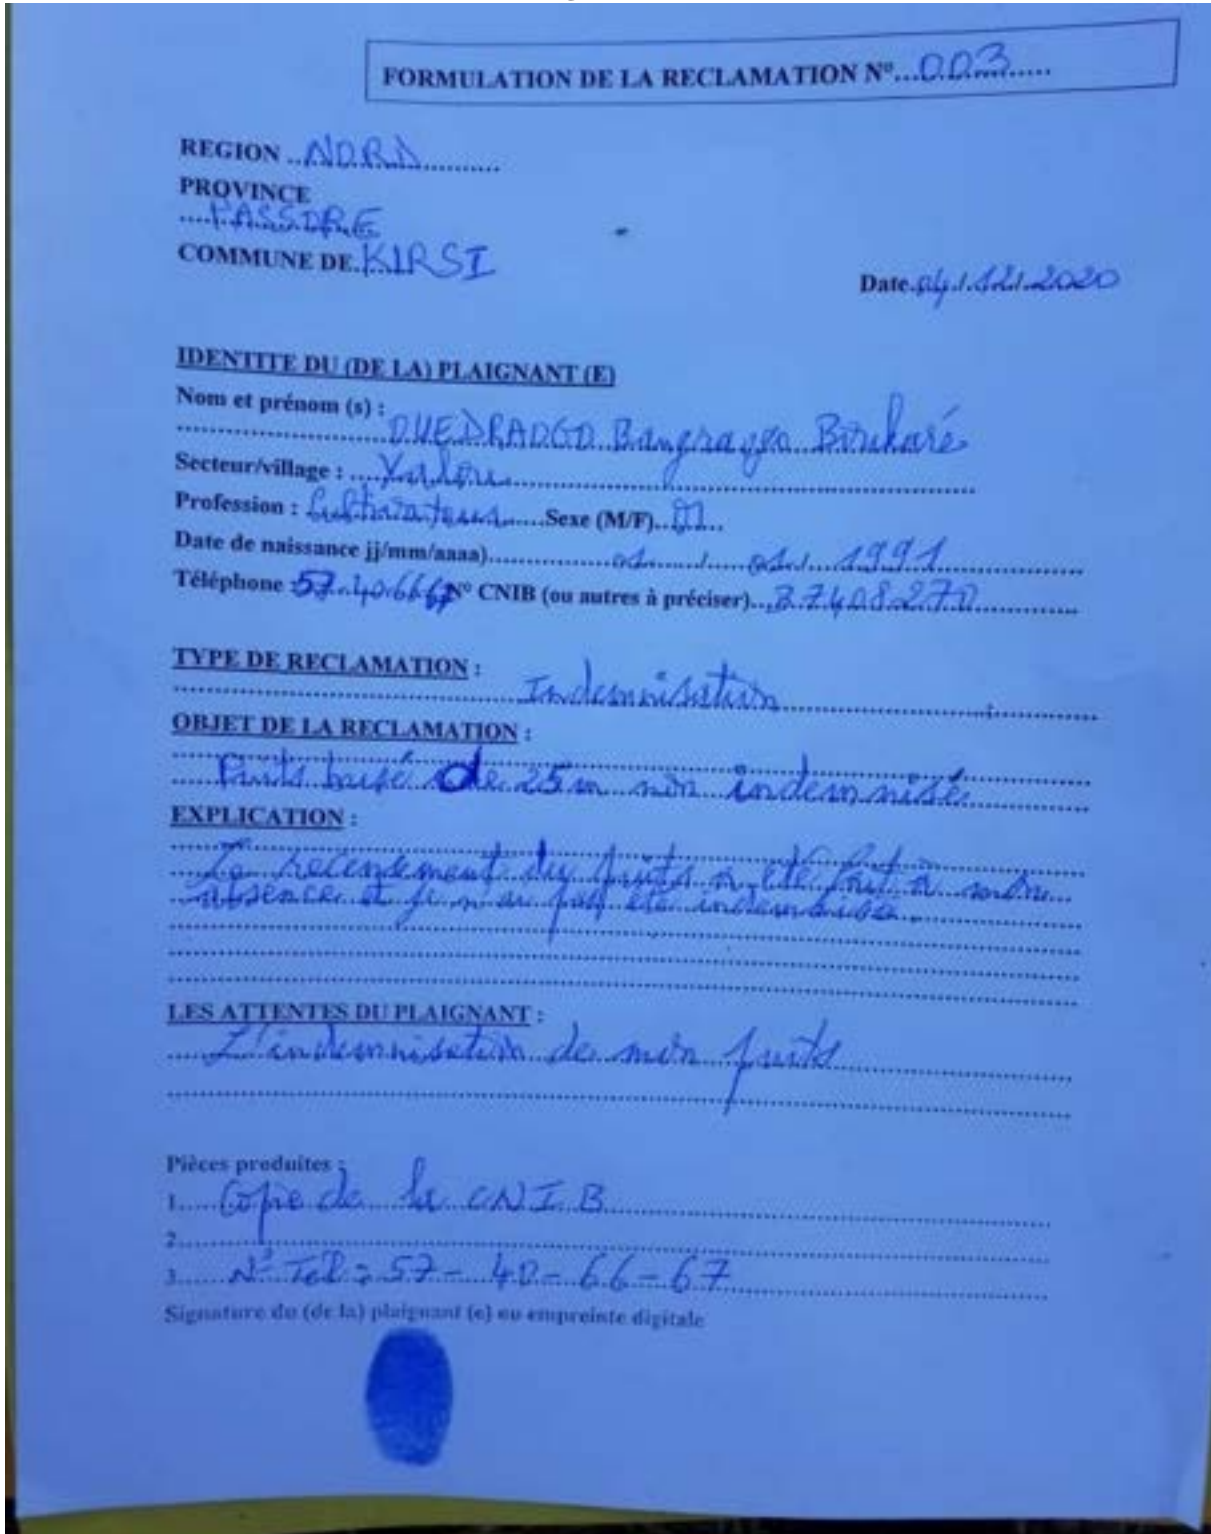 FORMULATION DE LA RECLAMATION N°...003............
REGION ..NORD..............
PROVINCE
.....PASSORE
COMMUNE DE..KIRSI
Date.04./.12./.2020
IDENTITE DU (DE LA) PLAIGNANT (E)
Nom et prénom (s) :
OUEDRAOGO Bangrayga Boukaré
Secteur/village : ....Yalou..............
Profession : Cultivateur......Sexe (M/F)..M...
Date de naissance jj/mm/aaaa)..............01..../....01../...1991..............
Téléphone :57.40.66.67N° CNIB (ou autres à préciser)...B7408270..............
TYPE DE RECLAMATION :
Indemnisation
OBJET DE LA RECLAMATION :
Puits busé de 25m non indemnisé
EXPLICATION :
Le recensement du puits a été fait à mon
absence et je n'ai pas été indemnisé.
LES ATTENTES DU PLAIGNANT :
L'indemnisation de mon puits
Pièces produites :
1.....Copie de la CNIB
2
3......N° Tél : 57-40-66-67
Signature du (de la) plaignant (e) ou empreinte digitale